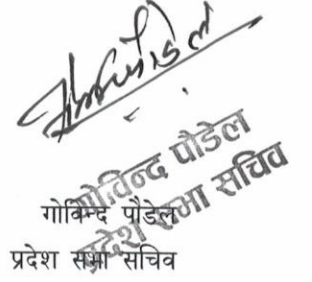 गोविन्द पौडेल
प्रदेश सभा सचिव
गोविन्द पौडेल
प्रदेश सभा सचिव